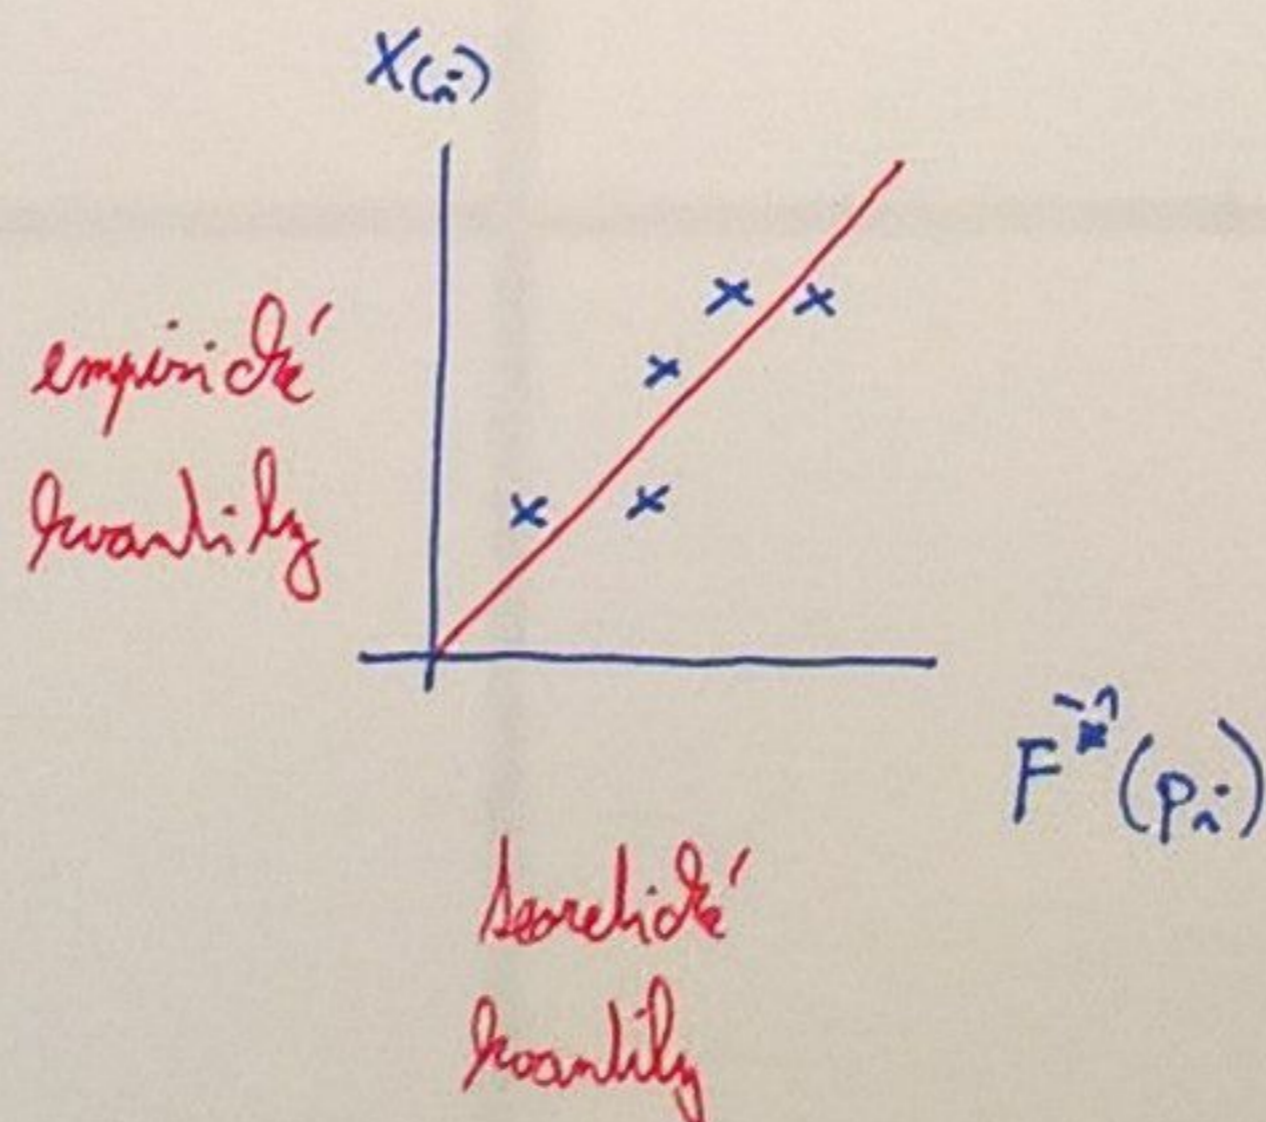 X(i)
empirické
kvantily
F⁻¹(pᵢ)
teoretické
kvantily